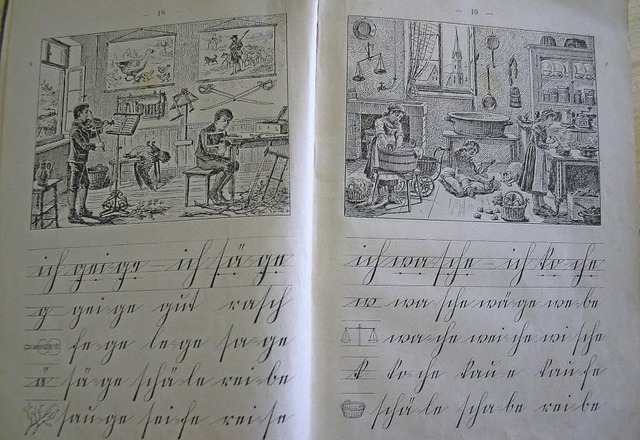 — 18 —
ich gei-ge – ich sä-ge
g gei-ge gut rasch
fe-ge le-ge sa-ge
ä sä-ge schä-le rei-be
sau-ge sei-fe rei-se
— 19 —
ich wa-sche – ich ko-che
w wa-sche wä-ge we-be
wa-che wei-che wi-sche
k ko-che kau-e kau-fe
schä-le scha-be rei-be